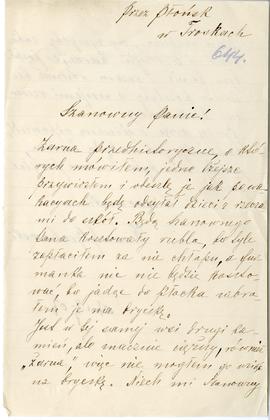 przez Płońsk
w Troskach
644.
Szanowny Panie!
Żarna przedhistoryczne, o któ-
rych mówiłem, jedno lżejsze
przywiozłem i odeślę je jak po wa-
kacyach będę odsyłał dzieci z
mi do szkół. Będą Szanownego
Pana kosztowały rubla, bo tyle
zapłaciłem za nie chłopu, a fur-
manka nie nie będzie koszto-
wać, bo jadąc do Płocka zabra-
łem je na brykę.
Jest w tej samej wsi drugi ka-
mień, ale znacznie cięższy, również
„żarna" więc nie mogłem go wziąć
na brykę. Niech mi Szanowny